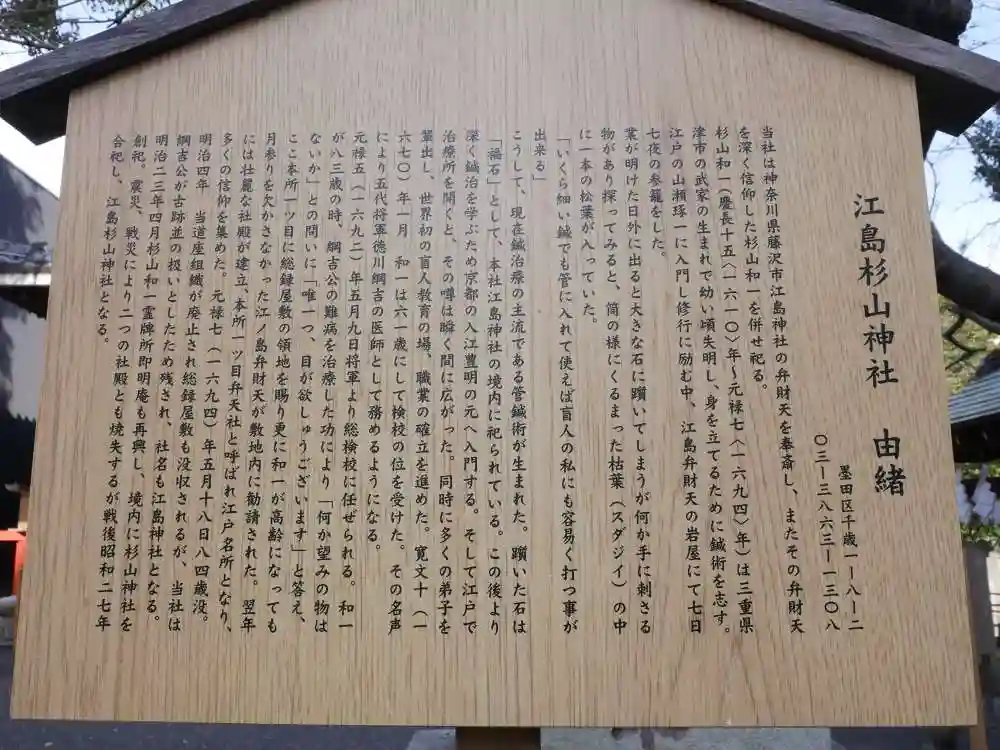 江島杉山神社　由緒
墨田区千歳一ー八ー二
〇三ー三八六三ー一三〇八
当社は神奈川県藤沢市江島神社の弁財天を奉斎し、またその弁財天
を深く信仰した杉山和一を併せ祀る。
杉山和一（慶長十五〈一六一〇〉年～元禄七〈一六九四〉年）は三重県
津市の武家の生まれで幼い頃失明し、身を立てるために鍼術を志す。
江戸の山瀬琢一に入門し修行に励む中、江島弁財天の岩屋にて七日
七夜の参籠をした。
業が明けた日外に出ると大きな石に躓いてしまうが何か手に刺さる
物があり探ってみると、筒の様にくるまった枯葉（スダジイ）の中
に一本の松葉が入っていた。
「いくら細い鍼でも管に入れて使えば盲人の私にも容易く打つ事が
出来る」
こうして、現在鍼治療の主流である管鍼術が生まれた。躓いた石は
「福石」として、本社江島神社の境内に祀られている。この後より
深く鍼治を学ぶため京都の入江豊明の元へ入門する。そして江戸で
治療所を開くと、その噂は瞬く間に広がった。同時に多くの弟子を
輩出し、世界初の盲人教育の場、職業の確立を進めた。寛文十（一
六七〇）年一月　和一は六一歳にして検校の位を受けた。その名声
により五代将軍徳川綱吉の医師として務めるようになる。
元禄五（一六九二）年五月九日将軍より総検校に任ぜられる。和一
が八三歳の時、綱吉公の難病を治療した功により「何か望みの物は
ないか」との問いに「唯一つ、目が欲しゅうございます」と答え、
ここ本所一ツ目に総録屋敷の領地を賜り更に和一が高齢になっても
月参りを欠かさなかった江ノ島弁財天が敷地内に勧請された。翌年
には壮麗な社殿が建立、本所一ツ目弁天社と呼ばれ江戸名所となり、
多くの信仰を集めた。　元禄七（一六九四）年五月十八日八四歳没。
明治四年　当道座組織が廃止され総録屋敷も没収されるが、当社は
綱吉公が古跡並の扱いとしたため残され、社名も江島神社となる。
明治二三年四月杉山和一霊牌所即明庵も再興し、境内に杉山神社を
創祀。震災、戦災により二つの社殿とも焼失するが戦後昭和二七年
合祀し、江島杉山神社となる。